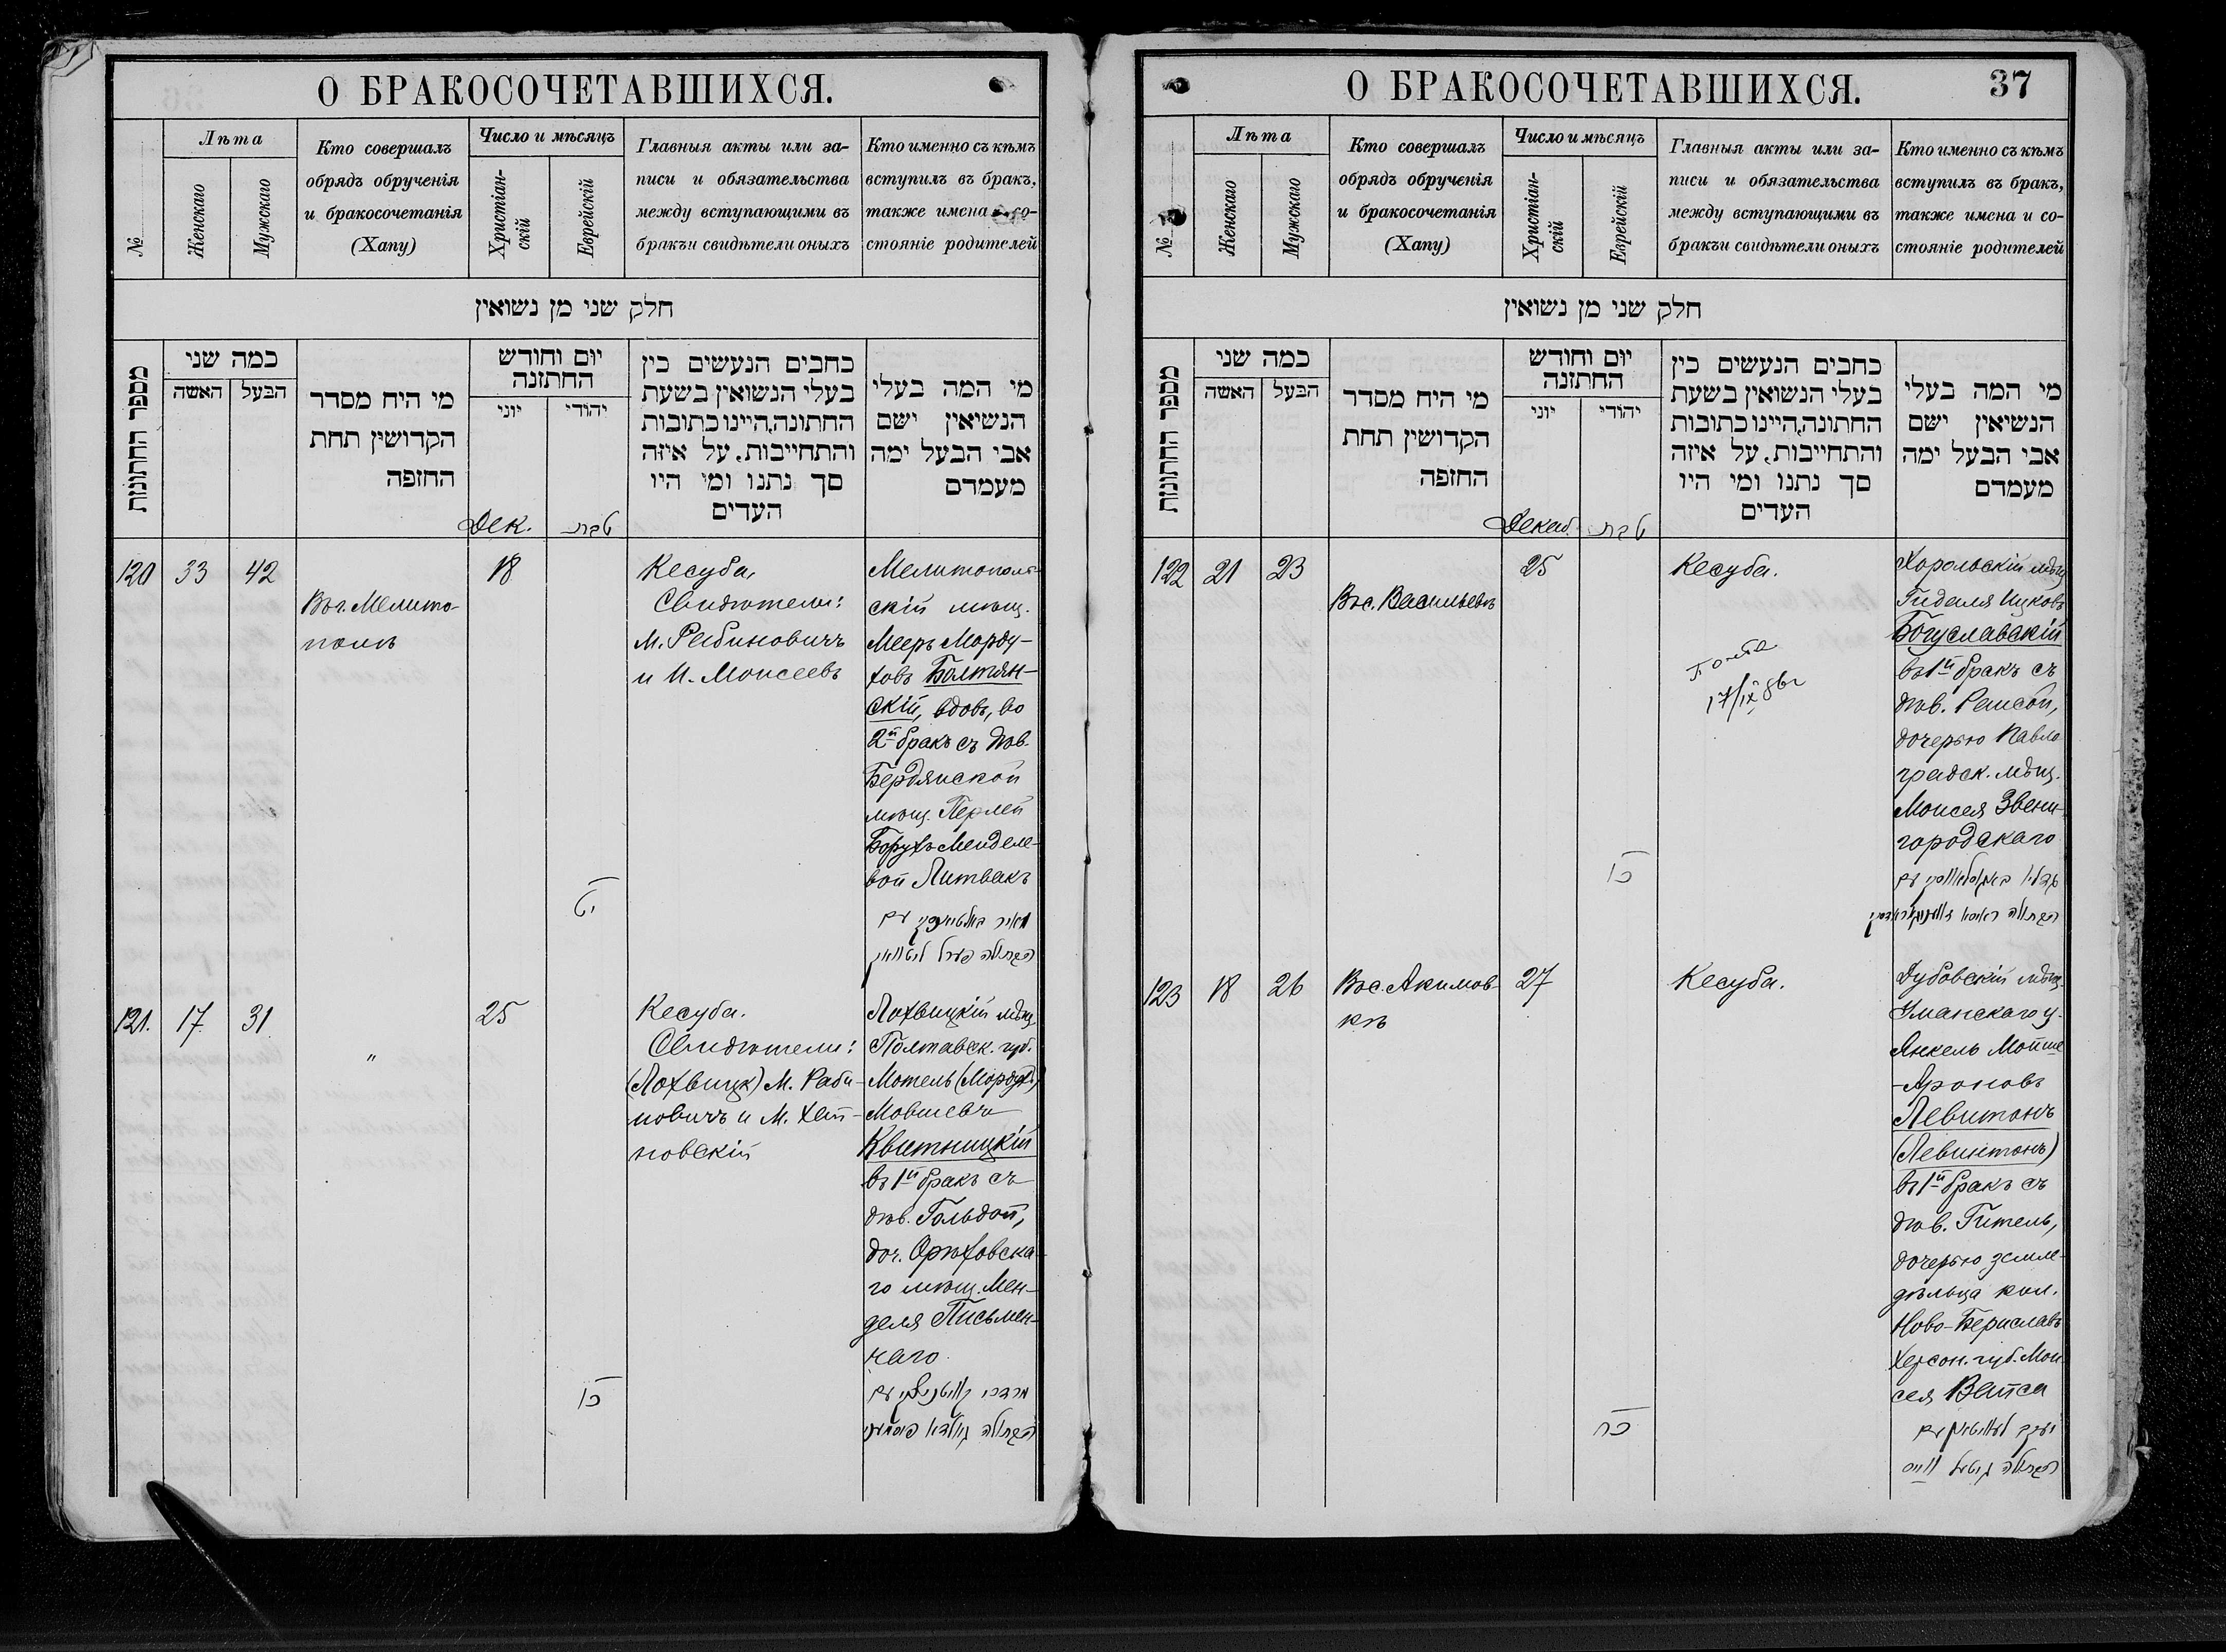 О БРАКОСОЧЕТАВШИХСЯ.
№
Лѣта
Женскаго
Мужскаго
Кто совершалъ
обрядъ обрученія
и бракосочетанія
(Хапу)
Число и мѣсяцъ
Христіан-
скій
Еврейскій
Главныя акты или за-
писи и обязательства
между вступающими въ
бракъ и свидѣтели оныхъ
Кто именно съ кѣмъ
вступилъ въ бракъ,
также имена и со-
стояніе родителей
חלק שני מן נשואין
מספר החתונות
כמה שני
האשה
הבעל
מי היח מסדר
הקדושין תחת
החופה
יום וחודש
החתונה
יוני
יהודי
כתבים הנעשים בין
בעלי הנשואין בשעת
החתונה, היינו כתובות
והתחייבות, על איזה
סך נתנו ומי היו
העדים
מי המה בעלי
הנשיאין ישם
אבי הבעל ימה
מעמדם
Дек.
טבת
120
33
42
Въ г. Мелито-
полѣ
18
יט
Кесуба,
Свидѣтели:
М. Рабиновичъ
и И. Моисеевъ
Мелитополь-
скій мѣщ.
Мееръ Морду-
ховъ Балтян-
скій, вдовъ, во
2й бракъ съ дѣв.
Бердянской
мѣщ. Перлей
Борухъ Менделе-
вой Литвакъ
מאיר באלטיאנסקי עם
הבתולה פערל ליטוואק
121.
17
31
"
25
כו
Кесуба.
Свидѣтели:
(Лохвицк) М. Раби-
новичъ и М. Хай-
новскій
Лохвицкій мѣщ.
Полтавск. губ.
Мотель (Мордух.)
Мовшевъ
Квитницкій
въ 1й бракъ съ
дѣв. Гольдой,
доч. Орѣховска-
го мѣщ. Мен-
деля Письмен-
наго
מרדכי קוויטניצקי עם
הבתולה גאלדא
О БРАКОСОЧЕТАВШИХСЯ.
37
№
Лѣта
Женскаго
Мужскаго
Кто совершалъ
обрядъ обрученія
и бракосочетанія
(Хапу)
Число и мѣсяцъ
Христіан-
скій
Еврейскій
Главныя акты или за-
писи и обязательства
между вступающими въ
бракъ и свидѣтели оныхъ
Кто именно съ кѣмъ
вступилъ въ бракъ,
также имена и со-
стояніе родителей
חלק שני מן נשואין
מספר החתונות
כמה שני
האשה
הבעל
מי היח מסדר
הקדושין תחת
החופה
יום וחודש
החתונה
יוני
יהודי
כתבים הנעשים בין
בעלי הנשואין בשעת
החתונה, היינו כתובות
והתחייבות, על איזה
סך נתנו ומי היו
העדים
מי המה בעלי
הנשיאין ישם
אבי הבעל ימה
מעמדם
Декаб.
טבת
122
21
23
Въ с. Васильевкѣ
25
כו
Кесуба.
17/IX
Хорольскій мѣщ.
Гидаля Ицковъ
Богуславскій
въ 1й бракъ съ
дѣв. Раисой,
дочерью Павло-
градск. мѣщ.
Моисея Звени-
городскаго
גדליה באגוסלאווסקי עם
הבתולה ראיסא
123
18
26
Въ с. Акимов-
кѣ
27
כח
Кесуба.
Дубовскій мѣщ.
Уманскаго у.
Янкель Мойше
-Ароновъ
Левитонъ
(Левинтонъ)
въ 1й бракъ съ
дѣв. Гитель,
дочерью земле-
дѣльца кол.
Ново-Бериславъ
Херсон. губ. Мои-
сея Вайса
יעקב לעוויטאן עם
הבתולה גיטעל ווייס